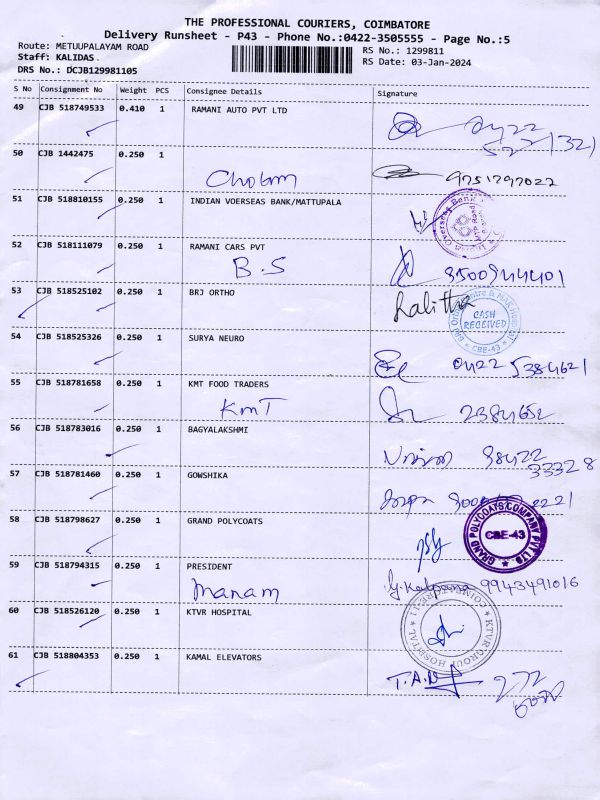 THE PROFESSIONAL COURIERS, COIMBATORE
Delivery Runsheet - P43 - Phone No.:0422-3505555 - Page No.:5
Route: METUUPALAYAM ROAD
RS No.: 1299811
Staff: KALIDAS.
RS Date: 03-Jan-2024
DRS No.: DCJB129981105
S No Consignment No Weight PCS Consignee Details Signature
49 CJB 518749533 0.410 1 RAMANI AUTO PVT LTD
50 CJB 1442475 0.250 1
9751797022
51 CJB 518810155 0.250 1 INDIAN VOERSEAS BANK/MATTUPALA
52 CJB 518111079 0.250 1 RAMANI CARS PVT
B.S
53 CJB 518525102 0.250 1 BRJ ORTHO
Lalitha
CASH RECEIVED
CBE-43
54 CJB 518525326 0.250 1 SURYA NEURO
0422 5384621
55 CJB 518781658 0.250 1 KMT FOOD TRADERS
KmT 2384652
56 CJB 518783016 0.250 1 BAGYALAKSHMI
98422
33328
57 CJB 518781460 0.250 1 GOWSHIKA
58 CJB 518798627 0.250 1 GRAND POLYCOATS
GRAND POLYCOATS COMPANY PVT LTD
CBE-43
59 CJB 518794315 0.250 1 PRESIDENT
manam Y. Kalpana 9943491016
60 CJB 518526120 0.250 1 KTVR HOSPITAL
KTVR GROUP HOSPITAL
COIMBATORE-11
61 CJB 518804353 0.250 1 KAMAL ELEVATORS